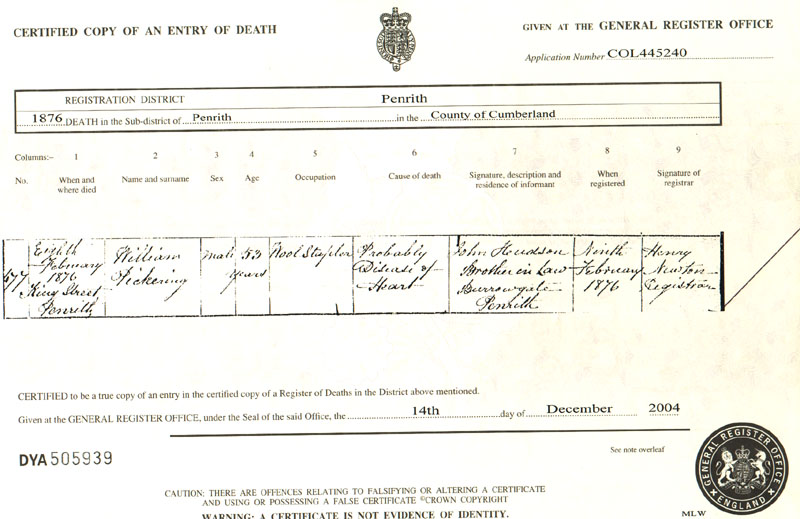 CERTIFIED COPY OF AN ENTRY OF DEATH
GIVEN AT THE GENERAL REGISTER OFFICE
Application Number COL445240
REGISTRATION DISTRICT Penrith
1876 DEATH in the Sub-district of Penrith in the County of Cumberland
Columns:- 1 2 3 4 5 6 7 8 9
No. When and where died Name and surname Sex Age Occupation Cause of death Signature, description and residence of informant When registered Signature of registrar
477
Eighth
February
1876
King Street
Penrith
William
Pickering
Male
53
years
Wool Stapler
Probably
Disease of
Heart
John Houdson
Brother in Law
Burrowgate
Penrith
Ninth
February
1876
Henry
Newton
Registrar
CERTIFIED to be a true copy of an entry in the certified copy of a Register of Deaths in the District above mentioned.
Given at the GENERAL REGISTER OFFICE, under the Seal of the said Office, the 14th day of December 2004
DYA 505939
See note overleaf
GENERAL REGISTER OFFICE
ENGLAND
CAUTION: THERE ARE OFFENCES RELATING TO FALSIFYING OR ALTERING A CERTIFICATE
AND USING OR POSSESSING A FALSE CERTIFICATE ©CROWN COPYRIGHT
WARNING: A CERTIFICATE IS NOT EVIDENCE OF IDENTITY.
MLW